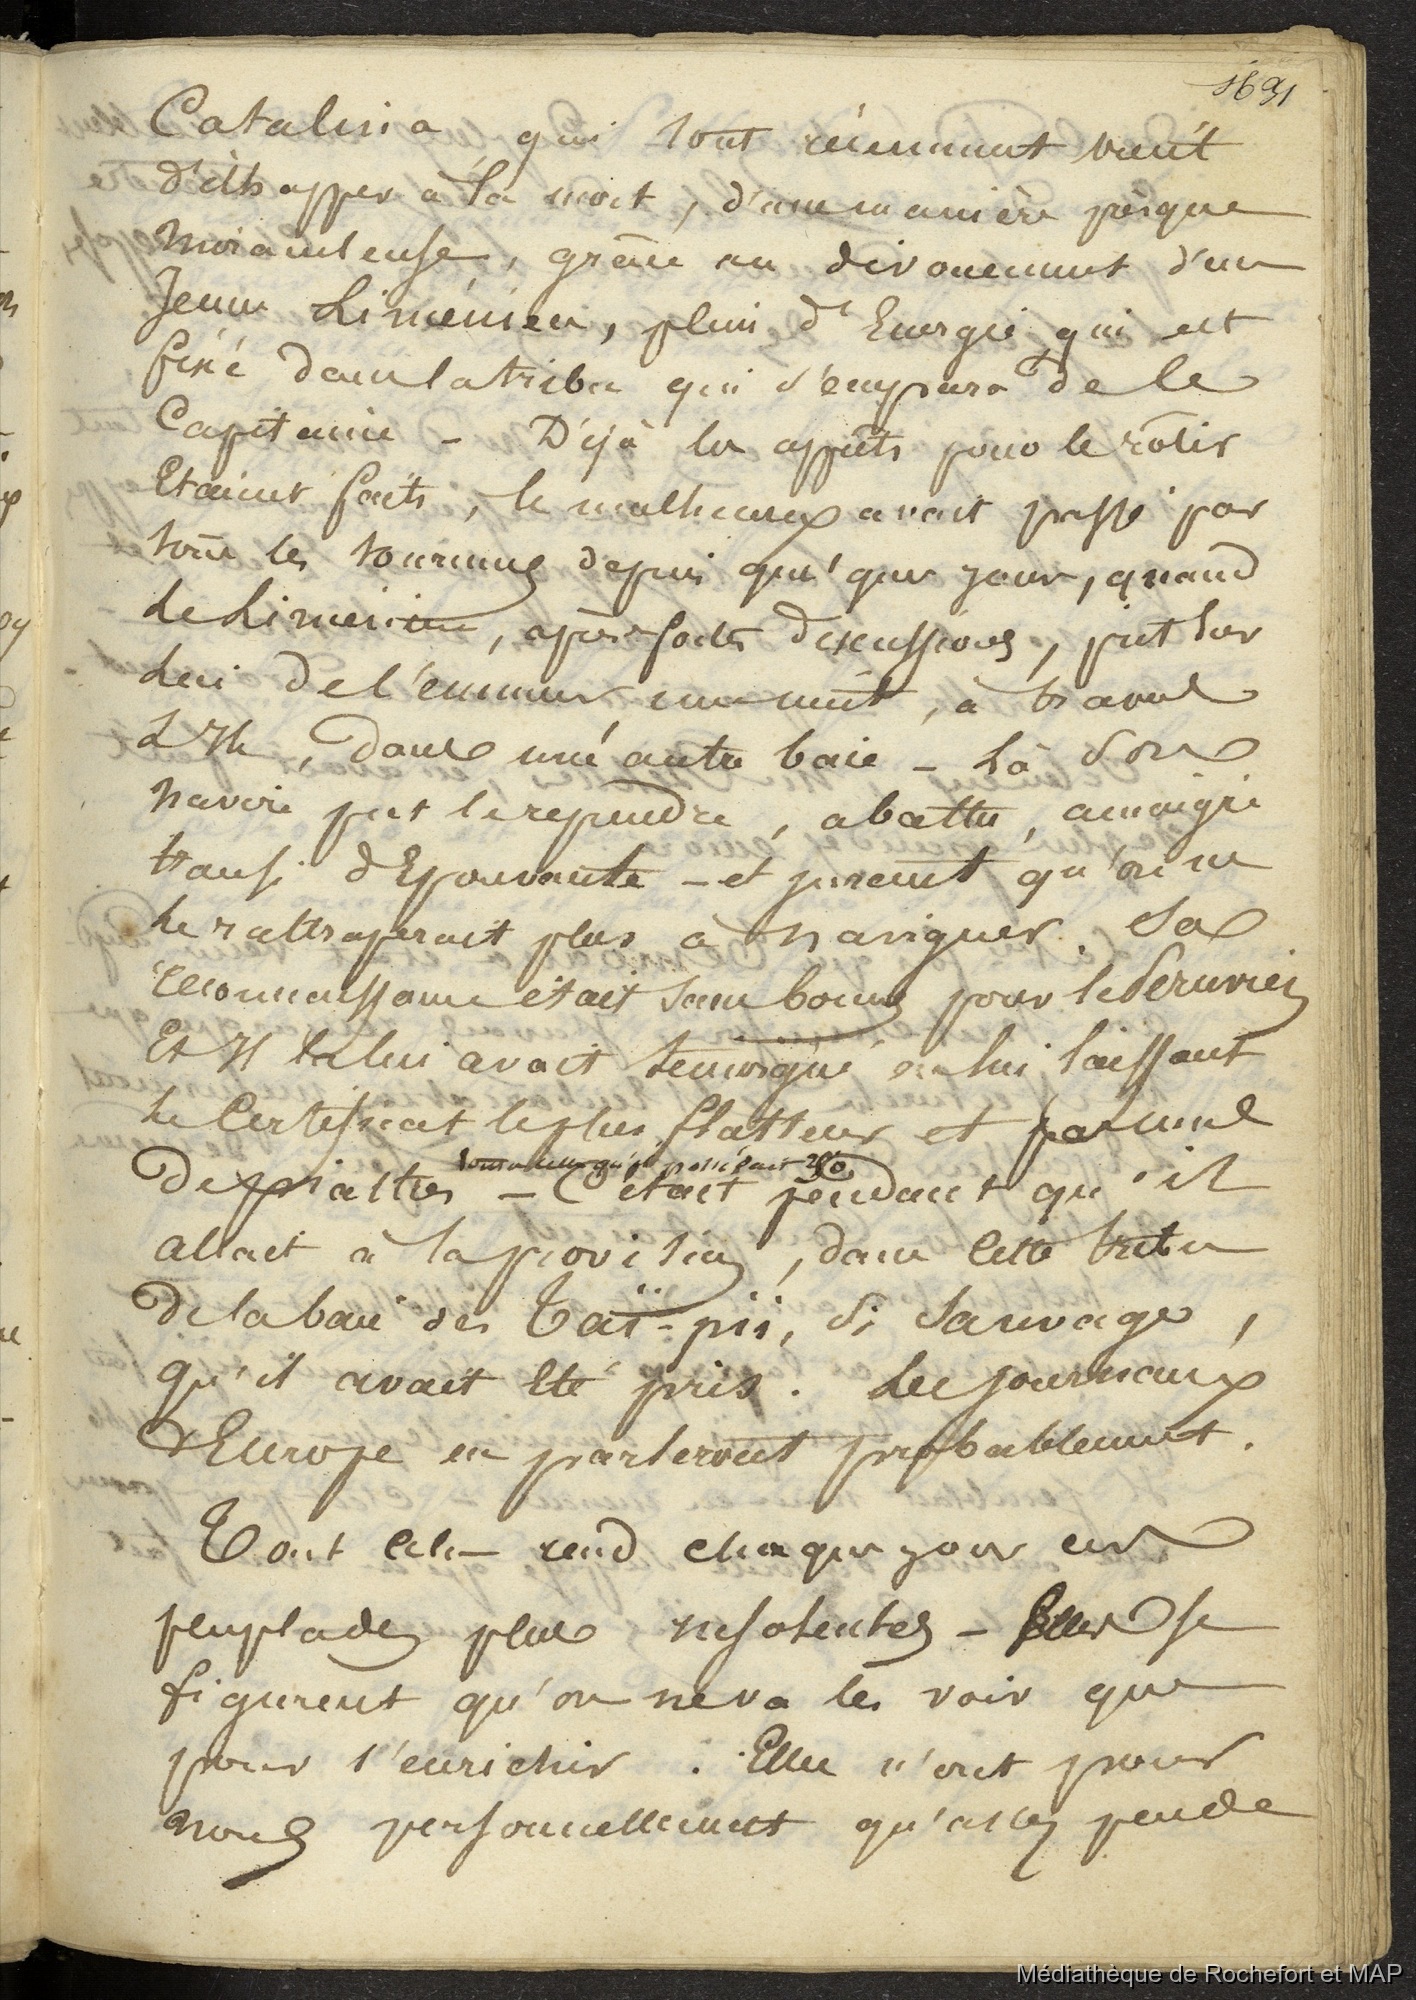 Catalina qui tout récemment vient
d'échapper à la mort, d'une manière presque
Miraculeuse, grâce au dévouement d'un
Jeune Liménien, plein d'Energie qui est
fixé dans la tribu qui s'empara de le
Capitaine - Déjà les apprêts pour le rôtir
Etaient faits, le malheureux avait passé par
tous les tourmens depuis quelques jours, quand
le Liménien, après fortes discussions, prit sur
lui de l'emmener une nuit, à travers
l'Ile, dans une autre baie - Là son
navire put le reprendre, abattu, amaigri
transi d'Epouvante - et jurant qu'on ne
le rattraperait plus à naviguer. Sa
reconnaissance était sans bornes pour le Péruvien
Et Il la lui avait témoigné en lui laissant
le Certificat le plus flatteur et pas mal
de piastres - C'était pendant qu'il
allait à la provision, dans cette tribu
de la baie des Taï-pii, si sauvage,
qu'il avait été pris. Les journaux
d'Europe en parleront probablement.
Tout cela rend chaque jour ces
peuplades plus insolentes - Elles se
figurent qu'on ne va les voir que
pour s'enrichir. Elles n'ont pour
nous personnellement qu'assez peu de
Médiathèque de Rochefort et MAP